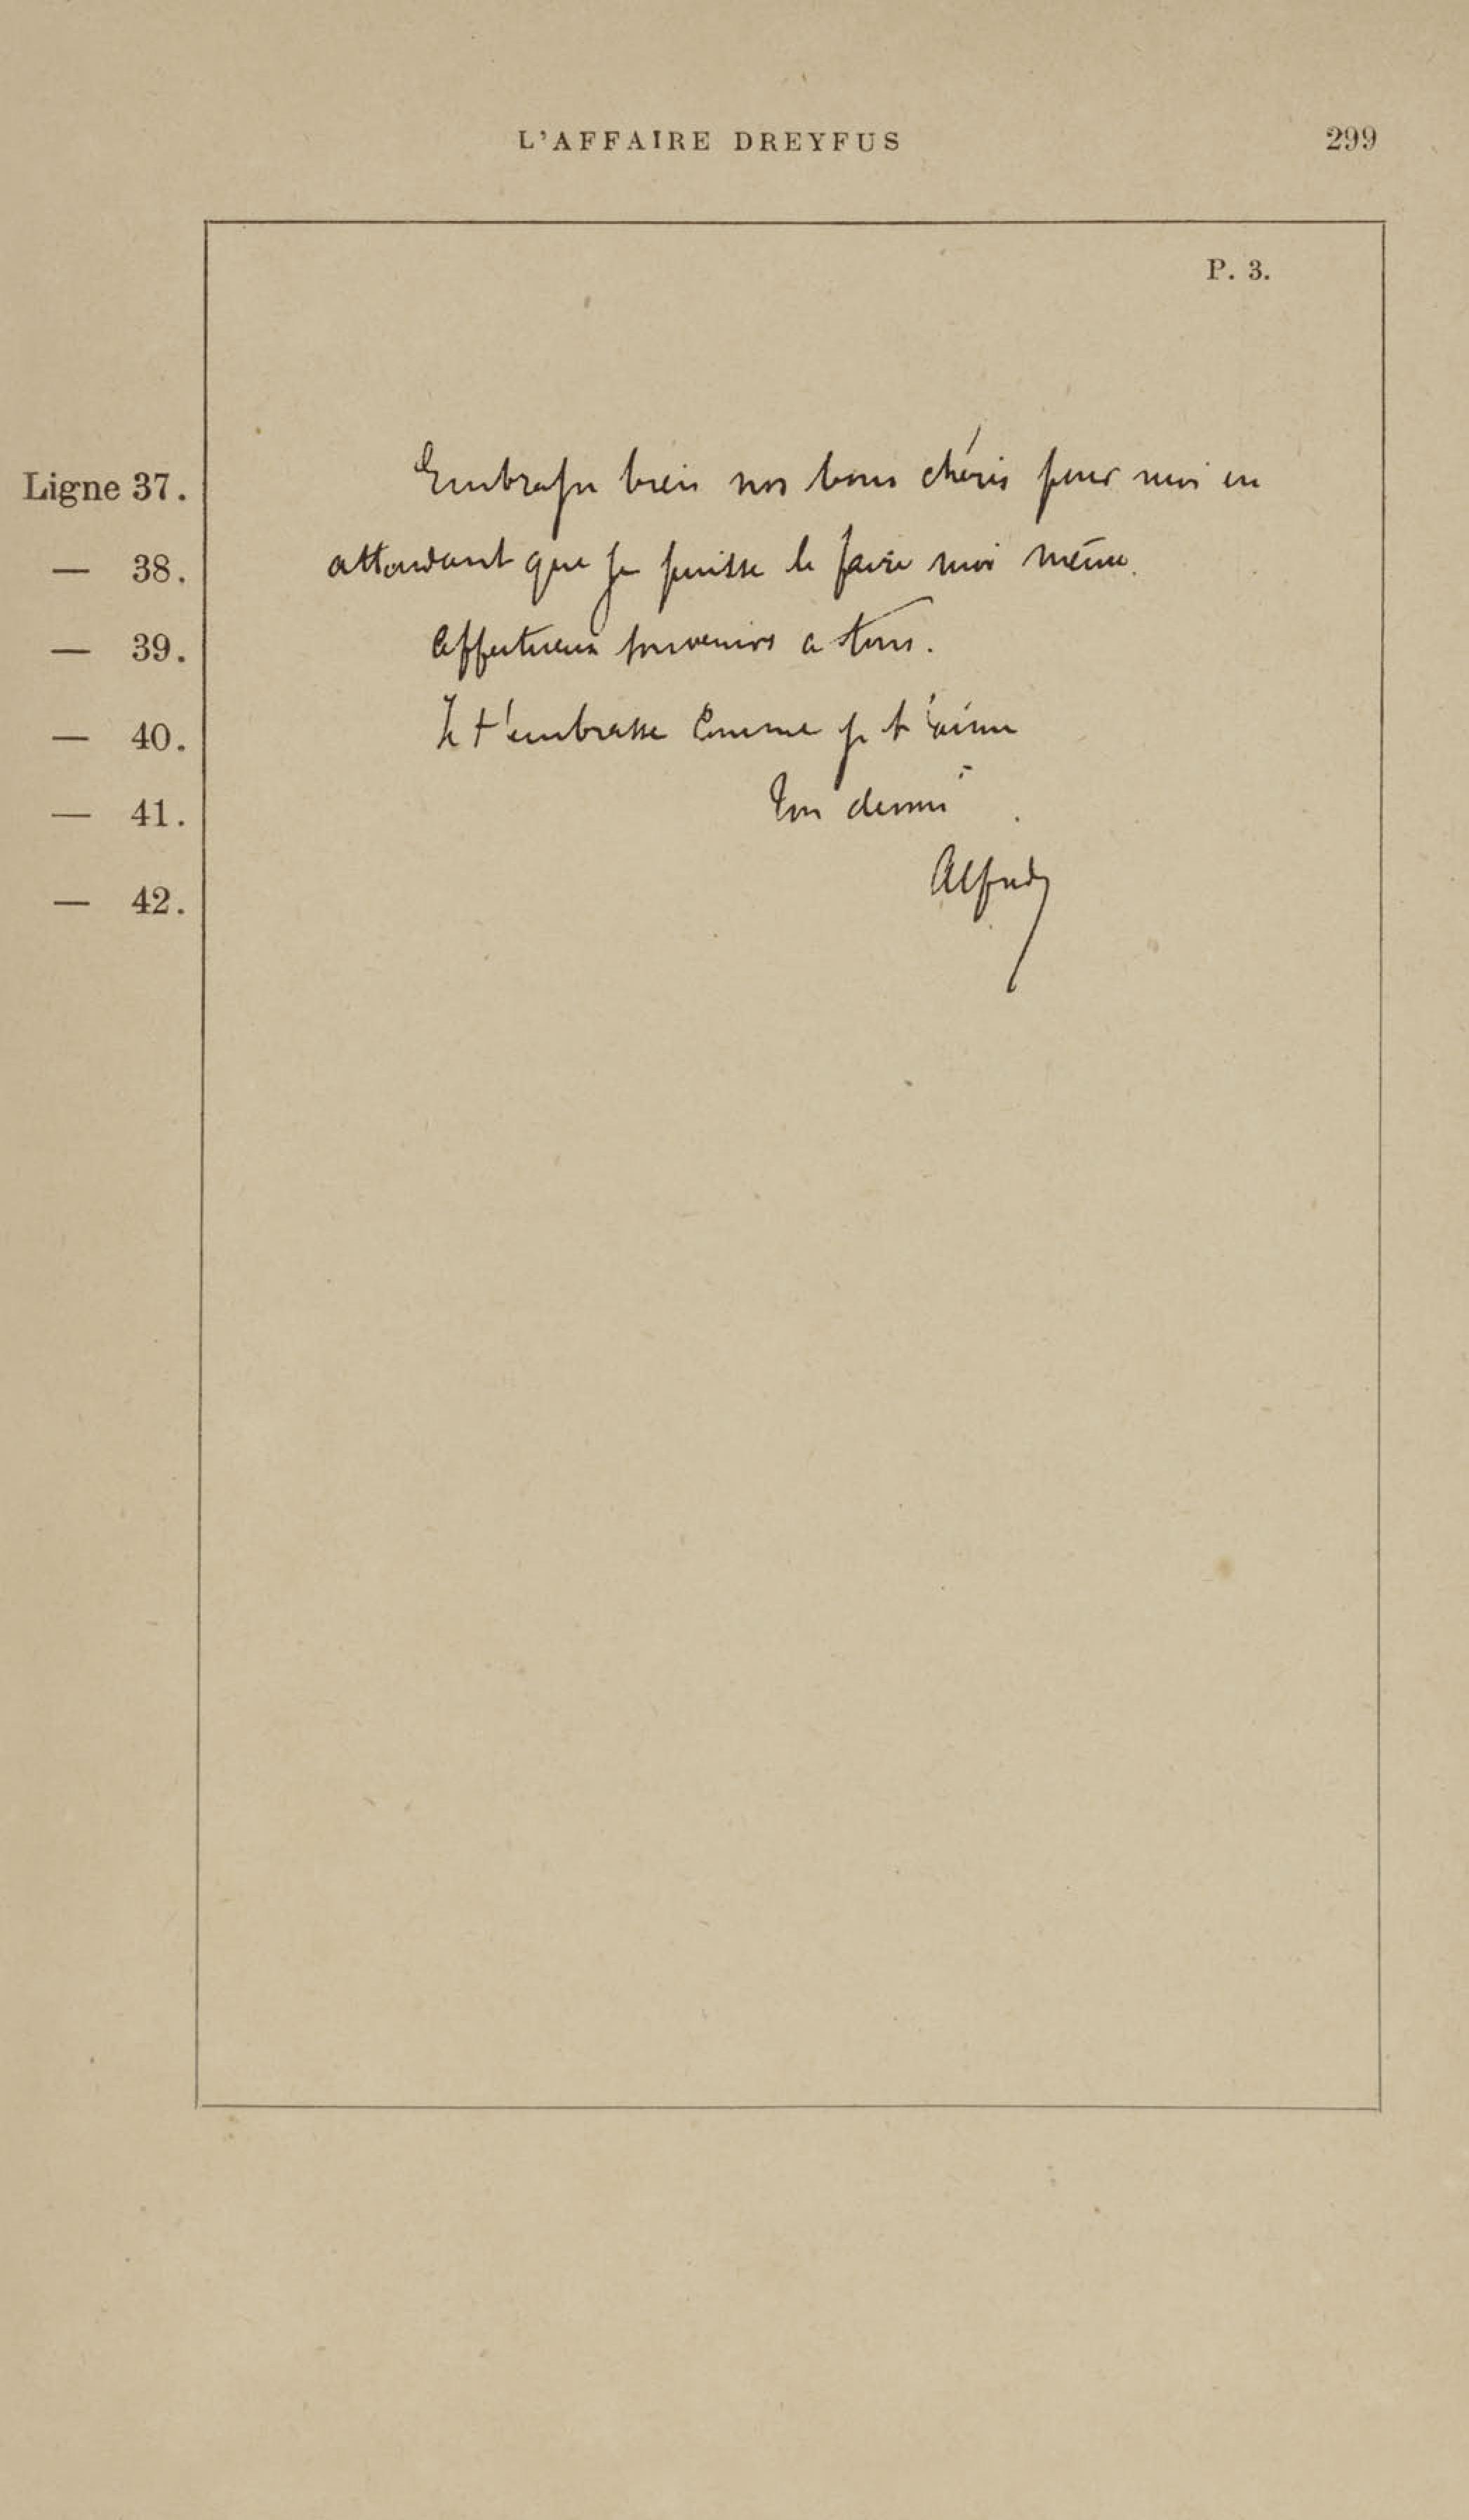 L'AFFAIRE DREYFUS 299
P. 3.
Ligne 37. Embrasse bien nos bons chéris pour moi en
— 38. attendant que je puisse le faire moi même.
— 39. Affectueux souvenirs a tous.
— 40. Je t'embrasse comme je t'aime
— 41. Ton
— 42. Alfred